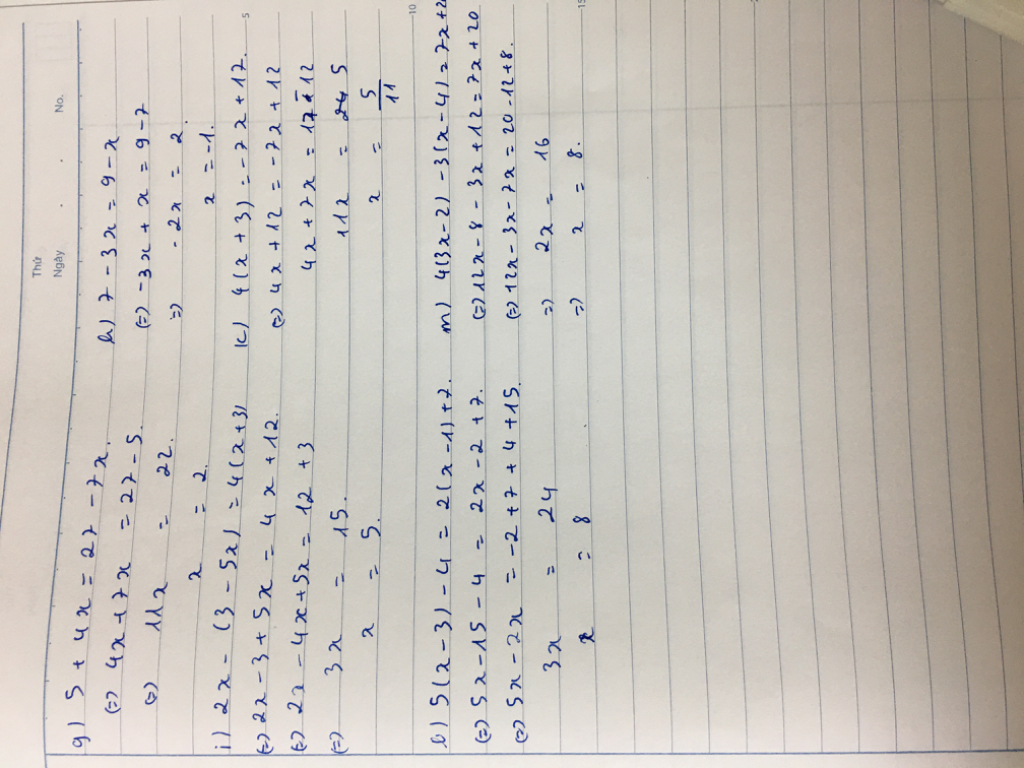 Thứ
Ngày No.
g) 5 + 4x = 27 - 7x.
(=) 4x + 7x = 27 - 5.
(=) 11x = 22.
x = 2.
h) 7 - 3x = 9 - x
(=) -3x + x = 9 - 7
=) -2x = 2
x = -1.
i) 2x - (3 - 5x) = 4(x+3)
(=) 2x - 3 + 5x = 4x + 12.
(=) 2x - 4x + 5x = 12 + 3
(=) 3x = 15.
x = 5.
k) 4(x + 3) = -7x + 17.
(=) 4x + 12 = -7x + 12
4x + 7x = 17 - 12
11x = 5
x = 5/11
l) 5(x - 3) - 4 = 2(x - 1) + 7.
(=) 5x - 15 - 4 = 2x - 2 + 7.
(=) 5x - 2x = -2 + 7 + 4 + 15.
3x = 24
x = 8
m) 4(3x - 2) - 3(x - 4) = 7x + 2
(=) 12x - 8 - 3x + 12 = 7x + 20
(=) 12x - 3x - 7x = 20 - 12 + 8.
=) 2x = 16
=) x = 8.
5
10
15